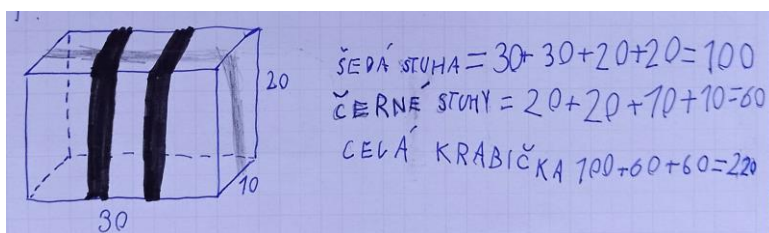 20
10
30
ŠEDÁ STUHA = 30+30+20+20=100
ČERNÉ STUHY = 20+20+10+10=60
CELÁ KRABIČKA 100+60+60=220